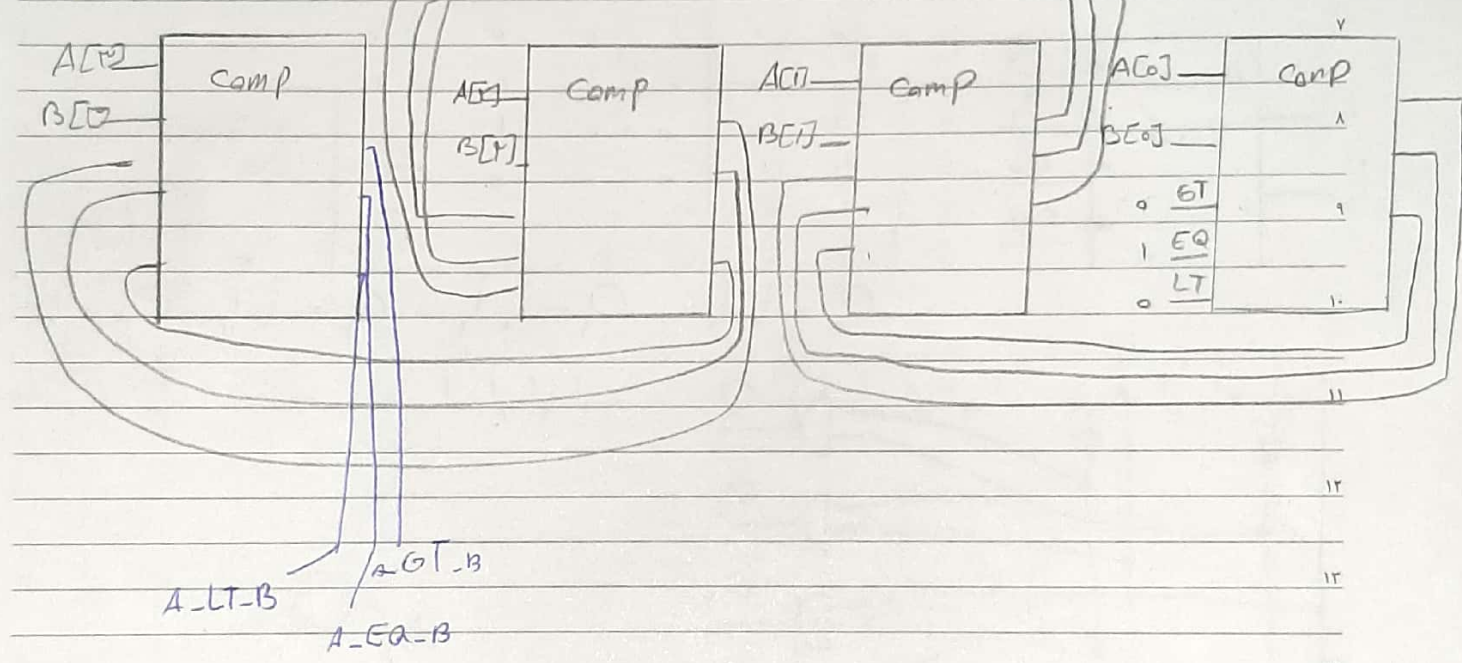 A[۳]
Comp
A[۲]
B[۲]
Comp
A[۱]
B[۱]
Comp
A[0]
B[0]
0 GT
1 EQ
0 LT
Comp
۷
۸
۹
۱۰
۱۱
۱۲
۱۳
A_LT_B
A_EQ_B
A_GT_B